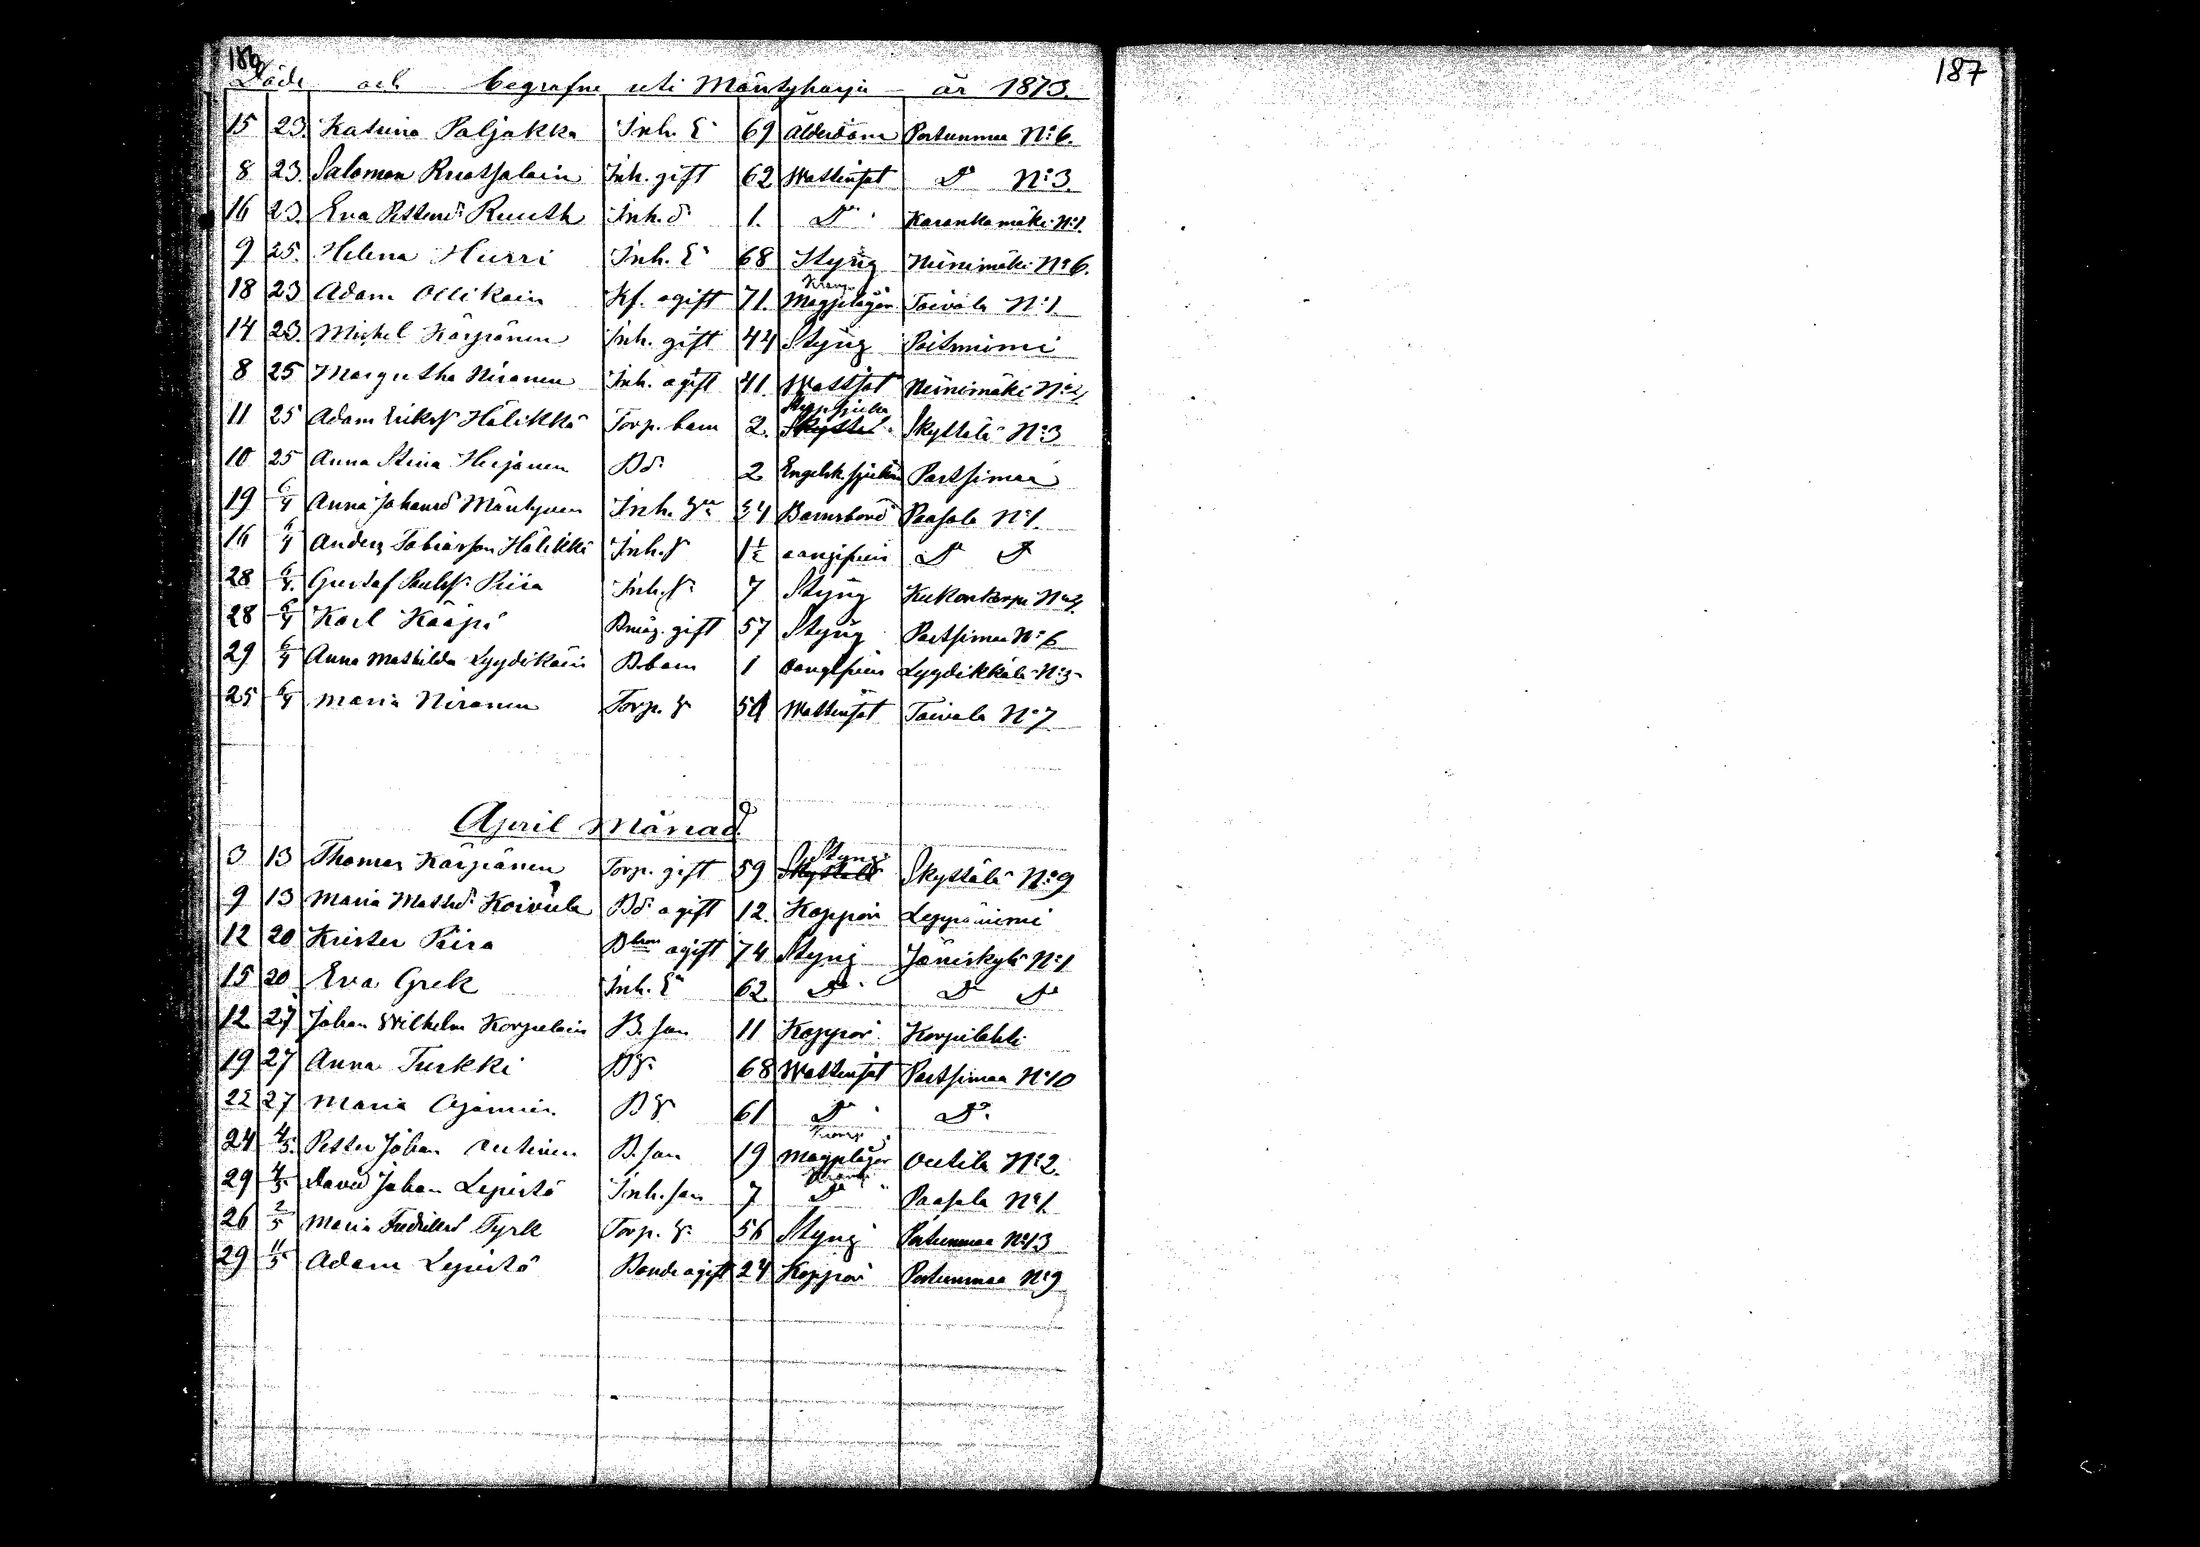 186
187
Döde och begrafne uti Mäntyharju år 1873.
15 23. Katrina Paljakka Inh. E. 69 Ålderdom Portunmaa N:o 6.
8 23. Salomon Ruotsalain Inh. gift 62 Wattusot Do N:o 3.
16 23. Eva Pettersd. Ruuth Inh. d. 1. Do Karankamäki N:o 1.
9 25. Helena Hurri Inh. E. 68 Styng Niinimäki N:o 6.
18 23 Adam Ollikain Kf. ogift 71. Magplågor Toivola N:o 1.
14 23. Michel Kärpänen Inh. gift 44 Styng Poitinniemi
8 25 Margretha Niranen Inh. ogift 41. Wattsot Niinimäki N:o 2
11 25 Adam Eriks. Hälikkä Torp. barn 2. Skyttälä N:o 3
10 25 Anna Stina Heijonen Bd. 2 Engelsk sjukan Partsimaa
19 6/4 Anna Johansd. Mäntynen Inh. 34 Barnsbörd Paasola N:o 1.
16 6/4 Anders Tobiasson Hälikkä Inh. s. 1½ oangifven Do Do
28 6/4. Gustaf Paulss. Piira Inh. s. 7 Styng Kukonkorpi N:o 2.
28 6/4 Karl Kääpä Bmåg. gift 57 Styng Partsimaa N:o 6
29 6/4 Anna Mathilda Lyydikäin B. barn 1 oangifven Lyydikkälä N:o 3
25 6/4 Maria Niranen Torp. 50 Wattusot Toivola N:o 7
April Månad.
3 13 Thomas Kärpänen Torp. gift 59 Styng Skyttälä N:o 9
9 13 Maria Mattsd. Koivula Bd. ogift 12. Koppor Leppäniemi
12 20 Krister Piira ogift 74 Styng Jäniskylä N:o 1
15 20 Eva Grek Inh. E. 62 Do Do Do
12 27 Johan Wilhelm Korpelain B. son 11 Koppor Korpilahti
19 27 Anna Turkki B. 68 Wattusot Partsimaa N:o 10
22 27 Maria B. 61 Do Do
24 4/5. Petter Johan Outinen B. son 19 Kramp Magplågor Outila N:o 2.
29 4/5 David Johan Lepistö Inh. son 7 Do Paasola N:o 1
26 2/5 Maria Fredriksd. Tyrk Torp. 56 Styng Portunmaa N:o 13
29 11/5 Adam Lepistö Bonde ogift 24 Koppor Portunmaa N:o 9